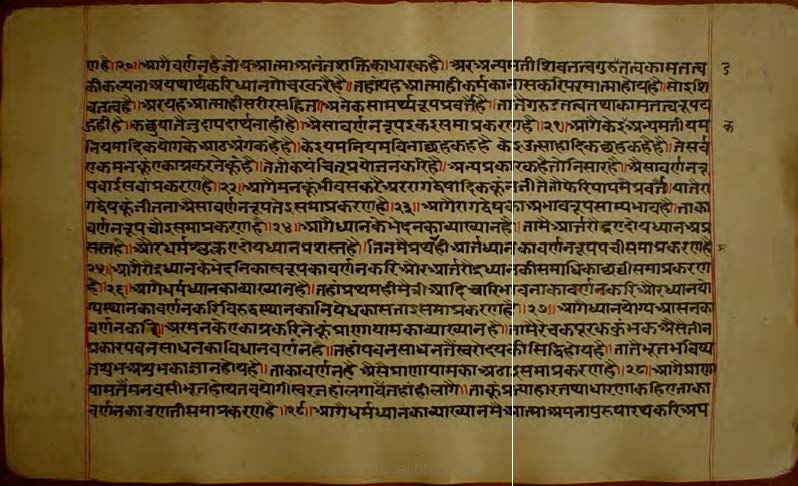 ण है॥२०॥ आगै वर्णन है जो यह आत्मा अनंत शक्ति का धारक है॥ अर अन्यमती शिवतत्व गुरुडतत्व कामतत्व
की कल्पना अयथार्थ करि ध्यान गोचर करै है॥ तहां यह आत्मा ही कर्म का नास करि परमात्मा होय है॥ सोइ शि
वतत्व है॥ अर यह आत्मा ही सरीर सहित॥ अनेक सामर्थ्यरूप प्रवर्त्तै है॥ तातै गरुडतत्व तथा कामतत्वरूप य
ह ही है॥ कछु यातै जुदा पदार्थ नाही है॥ ऐसा वर्णनरूप इकइसमा प्रकरण है॥२१॥ आगै केइ अन्यमती यम
नियमादि योग के आठ अंग कहै है॥ केइ यम नियम विना छह कहै है केइ उत्साहादिक छह कहै है॥ ते सर्व
एक मन कूं एकाग्र करने कूं है॥ ते तो कथंचित् प्रयोजन करि है॥ अन्य प्रकार कहै तो निसार है॥ ऐसा वर्णनरू
प वाईसवां प्रकरण है॥२२॥ आगै मन कूं तौ वस करै अर रागद्वेषादिक कूं न जीतै तो फेरि पाप मै प्रवर्त्तै॥ यातै रा
गद्वेष कूं जीतना ऐसा वर्णनरूप तेइसमा प्रकरण है॥२३॥ आगै रागद्वेष का अभावरूप साम्यभाव है॥ ताका
वर्णनरूप चौइसमा प्रकरण है॥२४॥ आगै ध्यान के भेदन का व्याख्यान है॥ तामै आर्त्त रौद्र ए दोय ध्यान अप्र
सस्त है॥ और धर्म शुक्ल ए दोय ध्यान प्रशस्त है॥ तिन मै प्रथम ही आर्त्तध्यान का वर्णनरूप पचीसमा प्रकरण है
२५॥ आगै रौद्रध्यान के भेदनि का स्वरूप का वर्णन करि और आर्त्तरौद्रध्यान की समाधि का छवीसमा प्रकरण
है॥२६॥ आगै धर्मध्यान का व्याख्यान है॥ तहां प्रथम ही मैत्री आदि चारि भावना का वर्णन करि और ध्यान यो
ग्य स्थान का वर्णन करि विरुद्ध स्थान का निषेध का सताइसमा प्रकरण है॥२७॥ आगै ध्यान योग्य आसन का
वर्णन करि॥ अर मन के एकाग्र करिने कूं प्राणायाम का व्याख्यान है॥ तामै रेचक पूरक कुंभक ऐसे तीन
प्रकार पवन साधन का विधान वर्णन है॥ तहां पवन साधन तै स्वरोदय की सिद्धि होय है॥ तातै भूत भविष्य
त शुभ अशुभ का ज्ञान होय है॥ ताका वर्णन है ऐसे प्राणायाम का अठाइसमा प्रकरण है॥२८॥ आगै प्राणा
याम तै मन वसीभूत होय तब योगीस्वर जहां लगावै तहांही लागै॥ ताकूं प्रत्याहार तथा धारणा कहिए ताका
वर्णन का उणतीसमा प्रकरण है॥२९॥ आगै धर्मध्यान का व्याख्यान मै आत्मा अपना पुरुषारथ करि अप